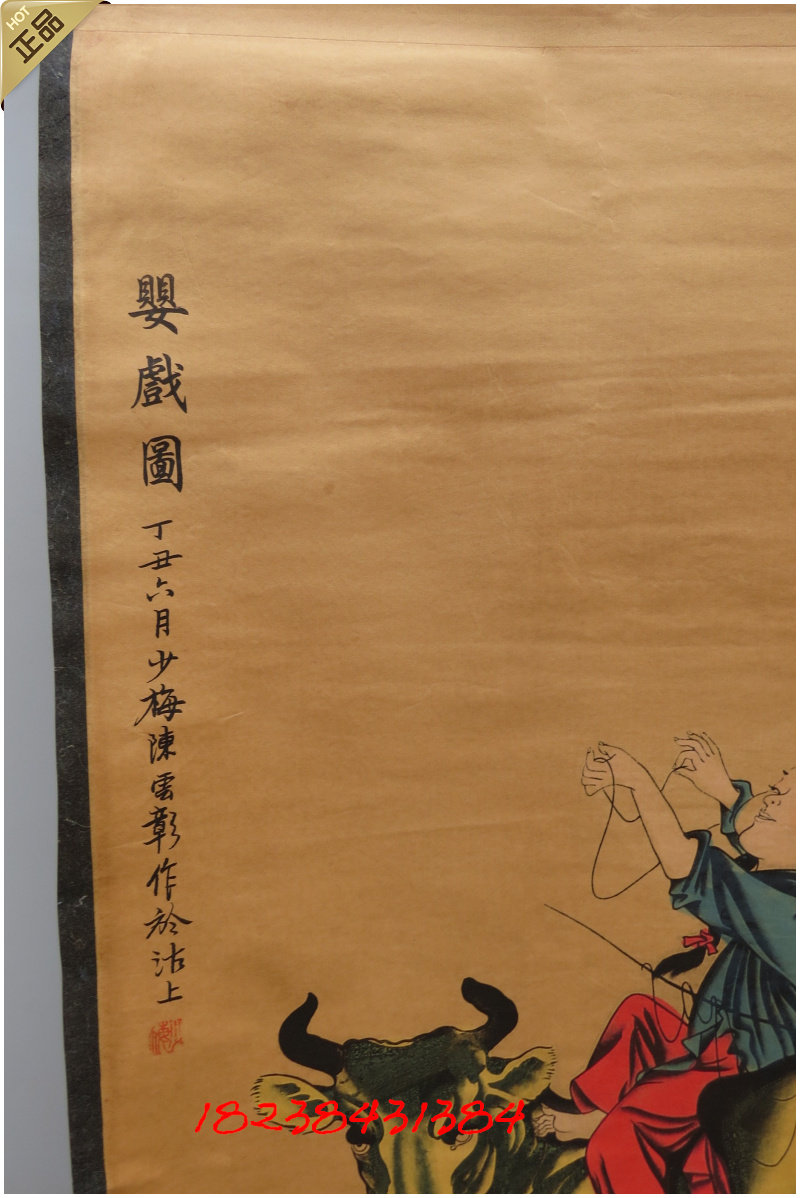 HOT
正品
嬰戲圖
丁丑六月少梅陳雲彰作於沽上
18238431384